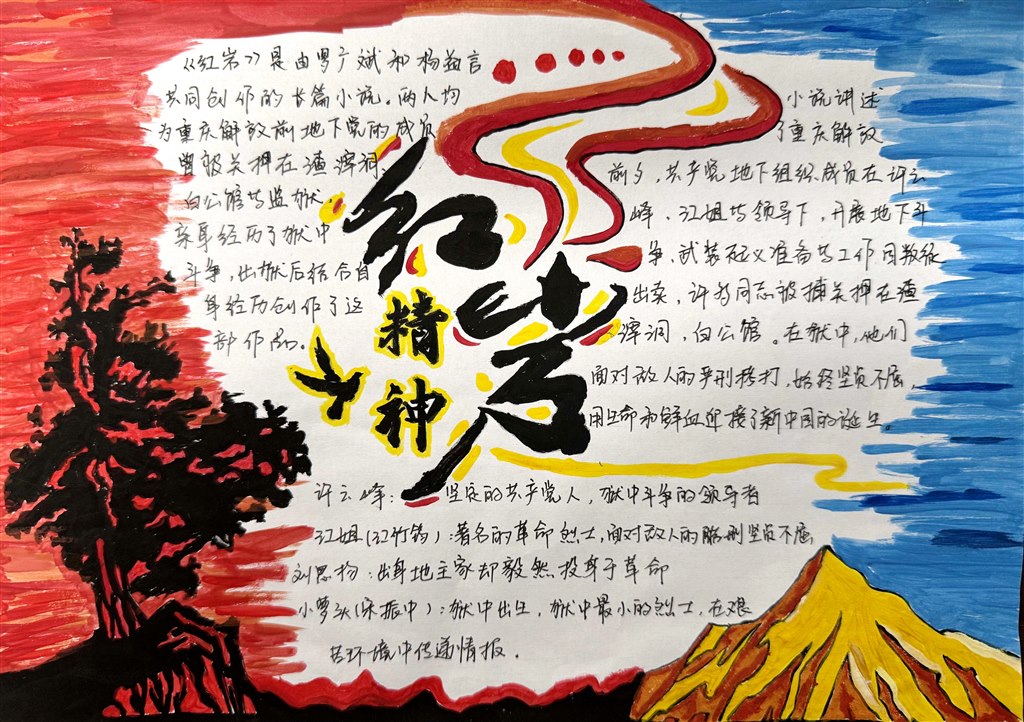 《红岩》是由罗广斌和杨益言
共同创作的长篇小说。两人均
为重庆解放前地下党的成员
曾被关押在渣滓洞、
白公馆等监狱。
亲身经历了狱中
斗争，出狱后结合自
身经历创作了这
部作品。
红岩
精神
小说讲述
了重庆解放
前夕，共产党地下组织成员在许云
峰、江姐等领导下，开展地下斗
争，武装起义准备等工作因叛徒
出卖，许多同志被捕关押在渣
滓洞，白公馆。在狱中，他们
面对敌人的严刑拷打，始终坚贞不屈，
用生命和鲜血迎接了新中国的诞生。
许云峰：坚定的共产党人，狱中斗争的领导者
江姐（江竹筠）：著名的革命烈士，面对敌人的酷刑坚贞不屈
刘思扬：出身地主家却毅然投身于革命
小萝头（宋振中）：狱中出生，狱中最小的烈士，在艰
苦环境中传递情报。